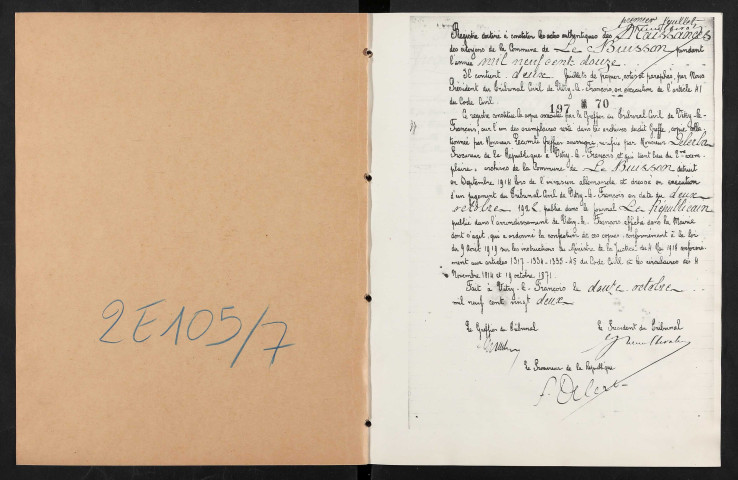 2E105/7
premier feuillet
Registre destiné à constituer les actes authentiques des Naissances
des citoyens de la Commune de Le Buisson pendant
l'année mil neuf cent douze.
Il contient deux feuillets de papier, cotés et paraphés, par Nous
Président du Tribunal Civil de Vitry-le-François, en exécution de l'article 41
du Code Civil.
197 70
Ce registre constitue la copie exécutée par le Greffier au Tribunal Civil de Vitry-le-
François, sur l'un des exemplaires resté dans les archives dudit Greffe, copie colla-
tionnée par Monsieur Greffier soussigné, vérifiée par Monsieur
Procureur de la République à Vitry-le-François et qui tient lieu du 2ème exem-
plaire, archives de la Commune de Le Buisson détruit
en Septembre 1914 lors de l'invasion allemande et dressé en exécution
d'un jugement du Tribunal Civil de Vitry-le-François en date du deux
octobre 1922 publié dans le journal Le Républicain
publié dans l'arrondissement de Vitry-le-François affiché dans la Mairie
dont s'agit, qui a ordonné la confection de ces copies, conformément à la loi
du 9 Août 1919 sur les instructions du Ministre de la Justice du 4 Mai 1918 conformé-
ment aux articles 1317-1334-1335-45 du Code Civil et les circulaires des 4
Novembre 1814 et 19 octobre 1871.
Fait à Vitry-le-François le douze octobre
mil neuf cent vingt deux
Le Greffier du Tribunal Le Président du Tribunal
Le Procureur de la République